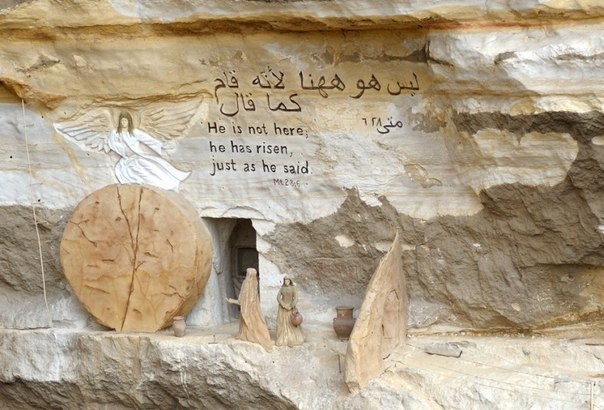 ليس هو ههنا لأنه قام
كما قال
متى ٢٨:٦
He is not here;
he has risen,
just as he said.
Mt.28:6